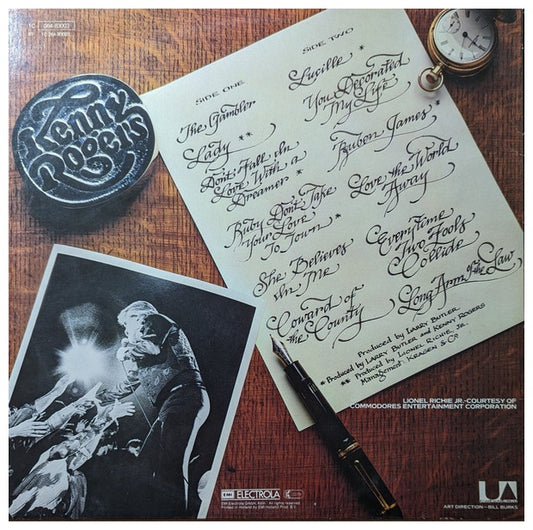 1C 064-83003
1C 064-83003
Kenny
Rogers
SIDE ONE
The Gambler
Lady **
Don't Fall In
Love With a
Dreamer *
Ruby Don't Take
Your Love
To Town *
She Believes
In Me
Coward of
the County
SIDE TWO
Lucille
You Decorated
My Life
Ruben James *
Love the World
Away
Everytime
Two Fools
Collide
Long Arm of the Law
Produced by LARRY BUTLER
* Produced by LARRY BUTLER and KENNY ROGERS
** Produced by LIONEL RICHIE, JR.
Management: KRAGEN & CO
LIONEL RICHIE JR.-COURTESY OF
COMMODORES ENTERTAINMENT CORPORATION
EMI ELECTROLA
EMI Electrola GmbH, Köln All rights reserved
Printed in Holland by EMI Holland
UA
ART DIRECTION – BILL BURKS